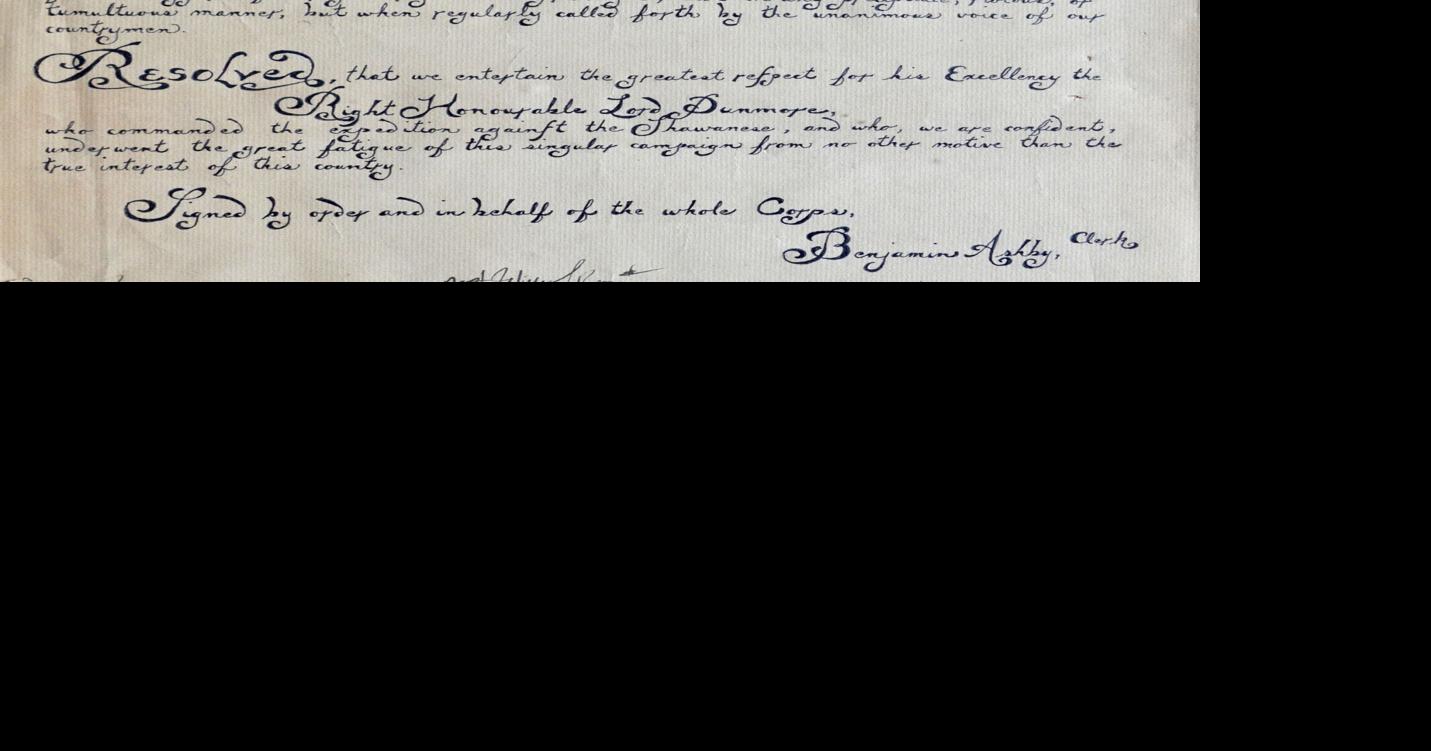 tumultuous manner, but when regularly called forth by the unanimous voice of our
countrymen.
Resolved, that we entertain the greatest reſpect for his Excellency the
Right Honourable Lord Dunmore,
who commanded the expedition againſt the Shawanese, and who, we are confident,
underwent the great fatigue of this singular campaign from no other motive than the
true interest of this country.
Signed by order and in behalf of the whole Corps,
Benjamin Ashby, Clerk